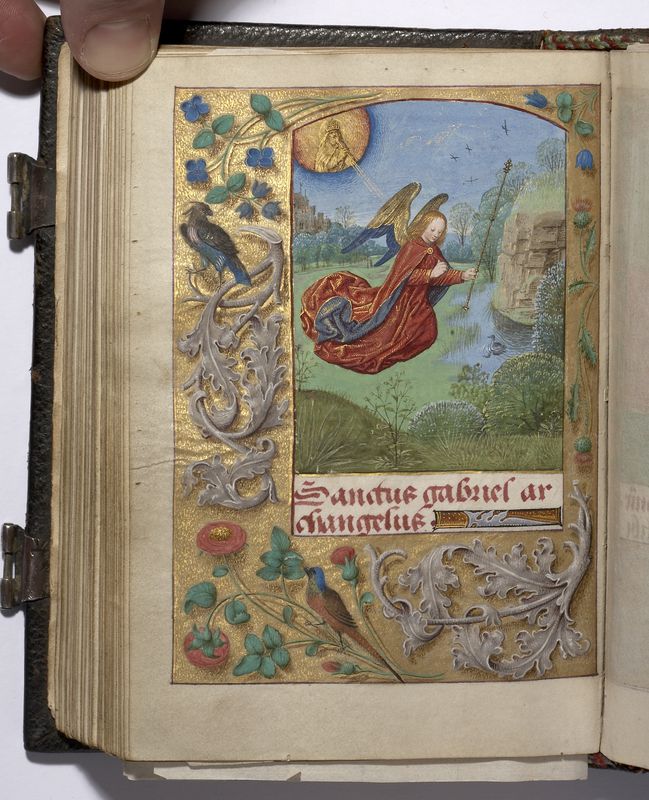 Sanctus gabriel ar
changelus